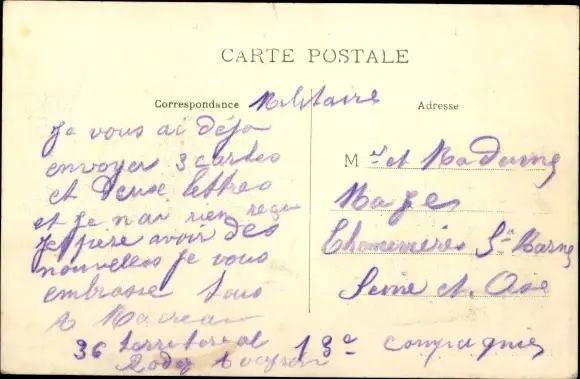 CARTE POSTALE
Correspondance Militaire
Adresse
Je vous ai déja
envoyer 3 cartes
et deuse lettres
et je n ai rien reçu
J espere avoir des
nouvelles je vous
embrasse tous
36 territorial 13e compagnie
Rodez Aveyron
Mr et Madame
Mage
Seine et Oise